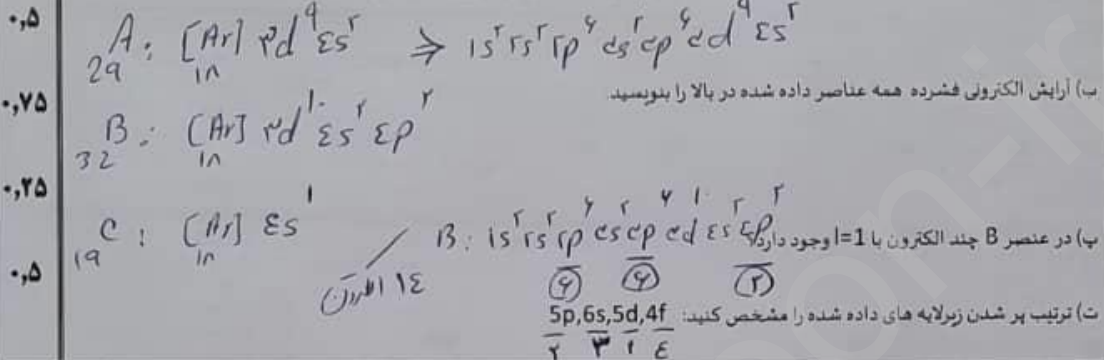 ۰,۵
₂₉A: [Ar]₁₈ ۳d⁹ ٤s² ⇒ ۱s² ۲s² ۲p⁶ ۳s² ۳p⁶ ۳d⁹ ٤s²
ب) آرایش الکترونی فشرده همه عناصر داده شده در بالا را بنویسید.
۰,۷۵
₃₂B: [Ar]₁₈ ۳d¹⁰ ٤s² ٤p²
۰,۲۵
₁₉C: [Ar]₁₈ ٤s¹
پ) در عنصر B چند الکترون با l=1 وجود دارد
B: ۱s² ۲s² ۲p⁶ ۳s² ۳p⁶ ۳d¹⁰ ٤s² ٤p²
۶ ۶ ۲
۱٤ الکترون
۰,۵
ت) ترتیب پر شدن زیرلایه های داده شده را مشخص کنید: 5p,6s,5d,4f
۲ ۳ ۱ ٤